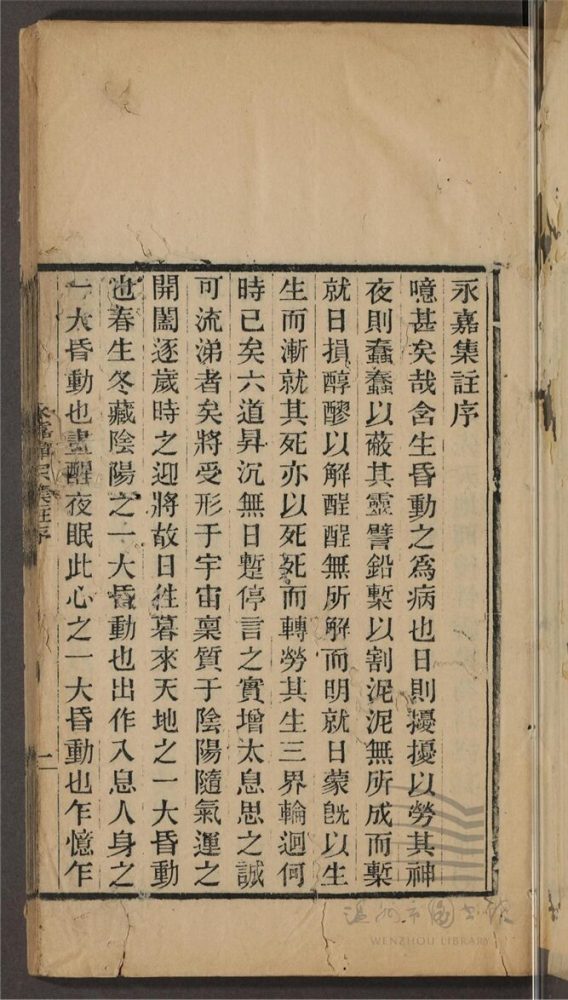 永嘉集註序
噫甚矣哉含生昏動之為病也日則擾擾以勞其神
夜則蠢蠢以蔽其靈譬鉛槧以割泥泥無所成而槧
就日損醇醪以解酲酲無所解而明就日蒙旣以生
生而漸就其死亦以死死而轉勞其生三界輪迴何
時已矣六道昇沉無日蹔停言之實增太息思之誠
可流涕者矣將受形于宇宙稟質于陰陽隨氣運之
開闔逐歲時之迎將故日徃暮來天地之一大昏動
也春生冬藏陰陽之一大昏動也出作入息人身之
一大昏動也晝醒夜眠此心之一大昏動也乍憶乍
永嘉禪宗集註序
二
温州市图书馆
WENZHOU LIBRARY